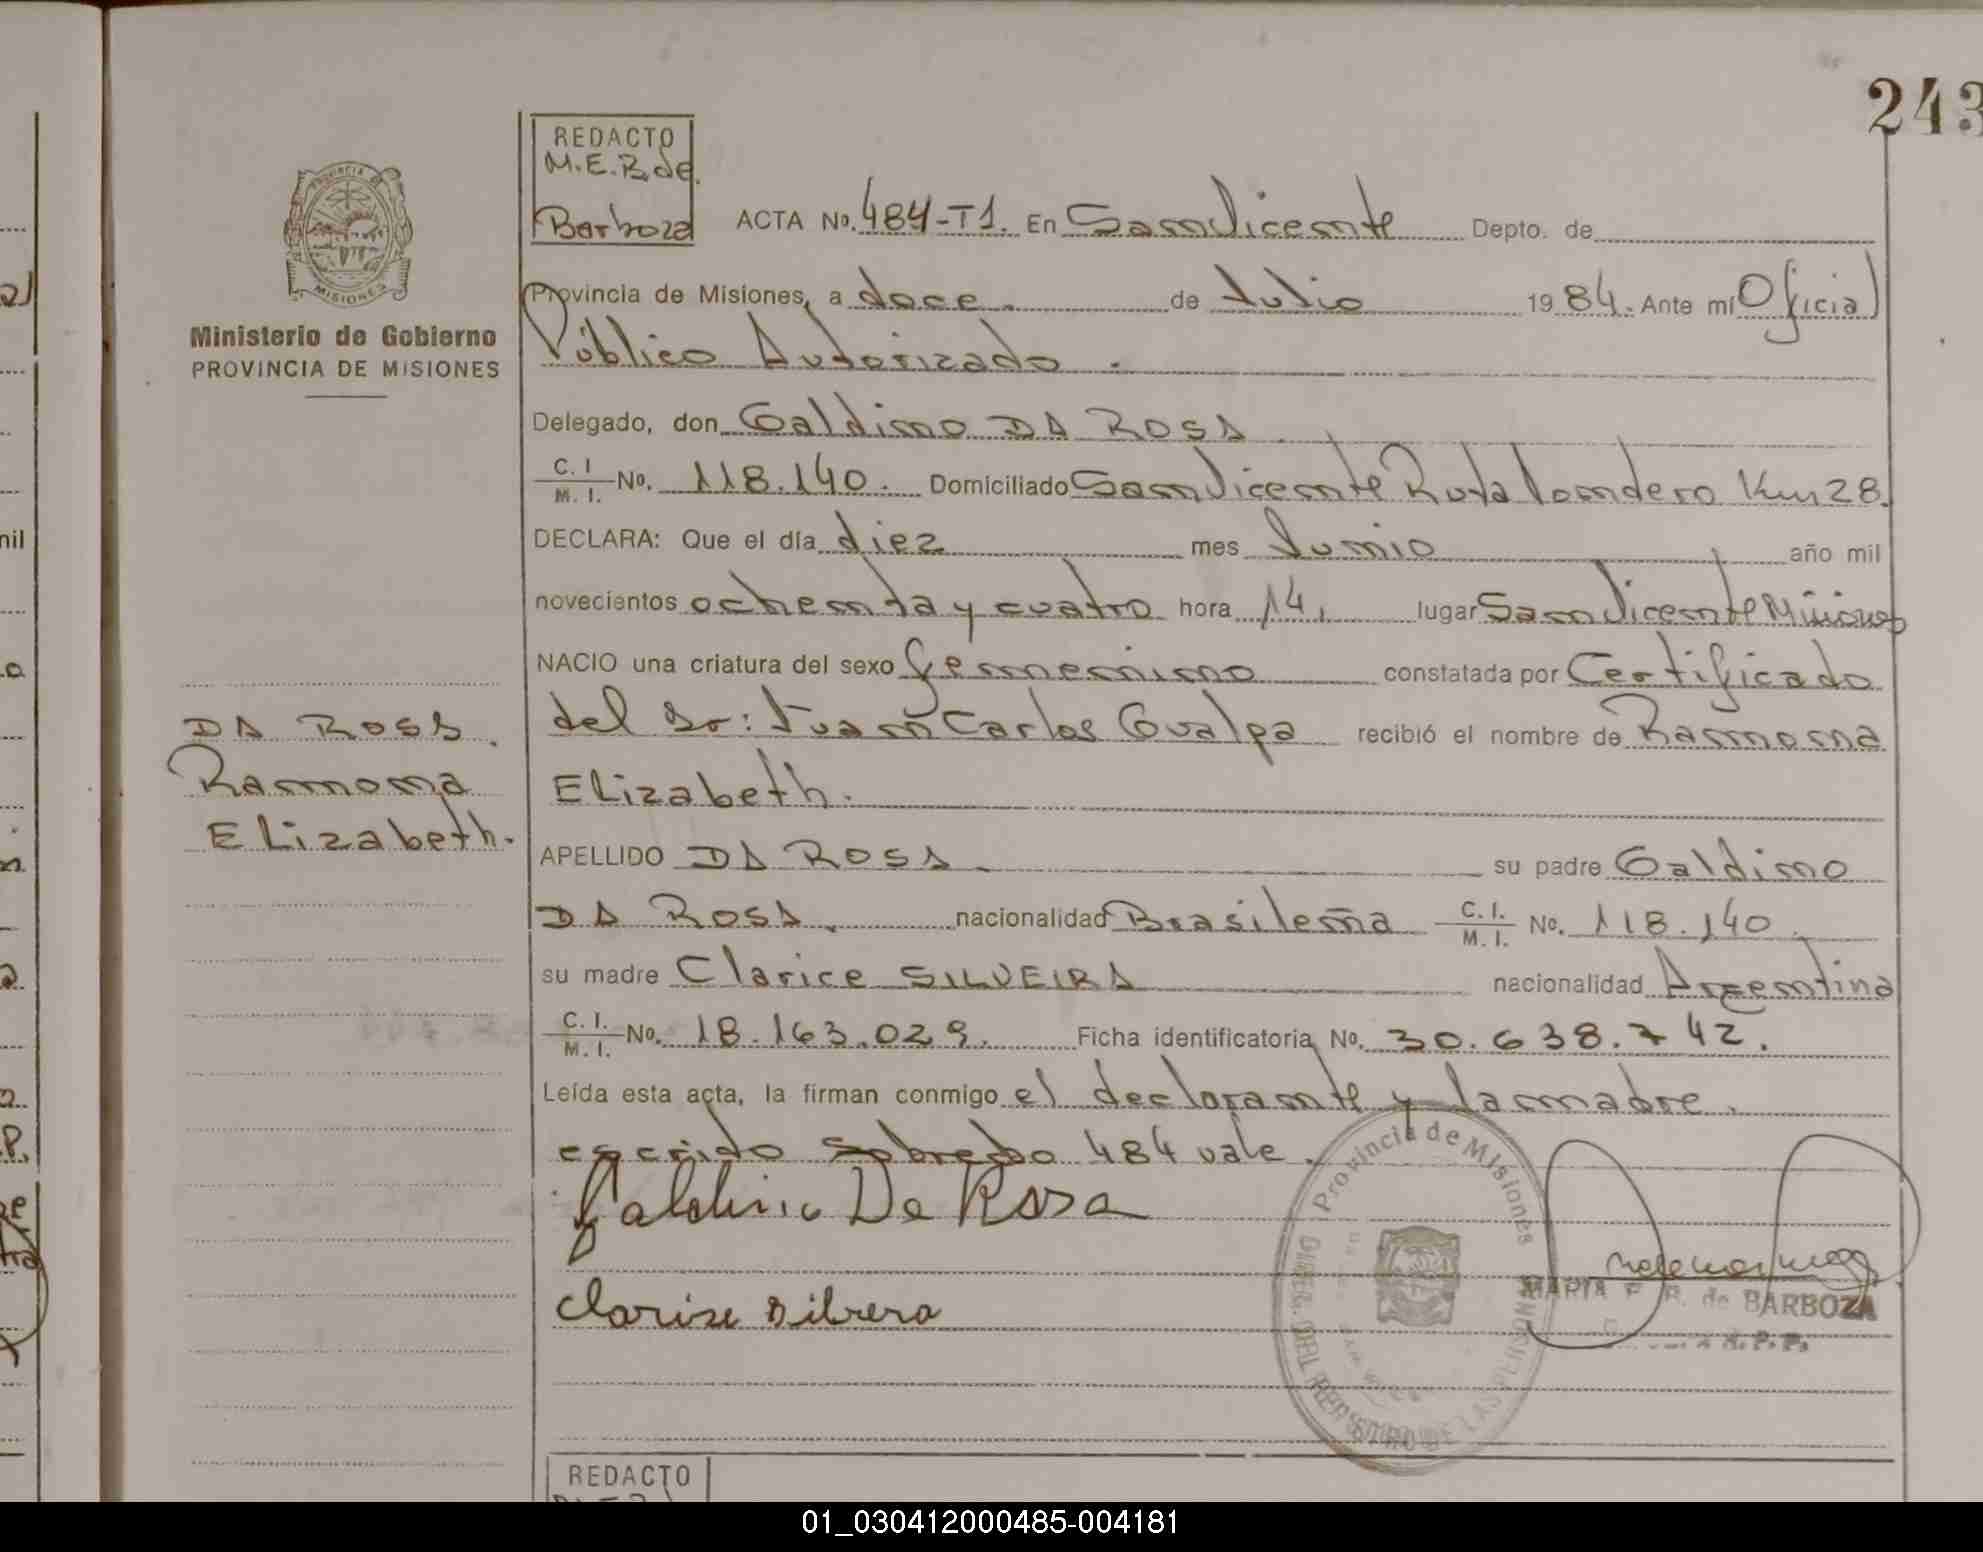 243
REDACTO
M.E.B. de
Barboza
MISIONES
Ministerio de Gobierno
PROVINCIA DE MISIONES
ACTA No. 484-T1. En San Vicente Depto. de
Provincia de Misiones, a doce. de Julio 1984. Ante mí Oficial
Público Autorizado.
Delegado, don Galdino DA ROSA
C. I. / M. I. No. 118.140. Domiciliado San Vicente Ruta Londero Km 28.
DECLARA: Que el día diez mes Junio año mil
novecientos ochenta y cuatro hora 14, lugar San Vicente Misiones
NACIO una criatura del sexo femenino constatada por Certificado
del Sr: Juan Carlos Gualpa recibió el nombre de Ramona
Elizabeth.
APELLIDO DA ROSA su padre Galdino
DA ROSA. nacionalidad Brasileña C. I. / M. I. No. 118.140.
su madre Clarice SILVEIRA nacionalidad Argentina
C. I. / M. I. No. 18.163.029. Ficha identificatoria No. 30.638.742.
Leída esta acta, la firman conmigo el declarante y la madre.
escrido sobredo 484 vale.
DA ROSA.
Ramona
Elizabeth.
Galdino Da Rosa
Provincia de Misiones
MARIA E. B. de BARBOZA
REDACTO
01_030412000485-004181